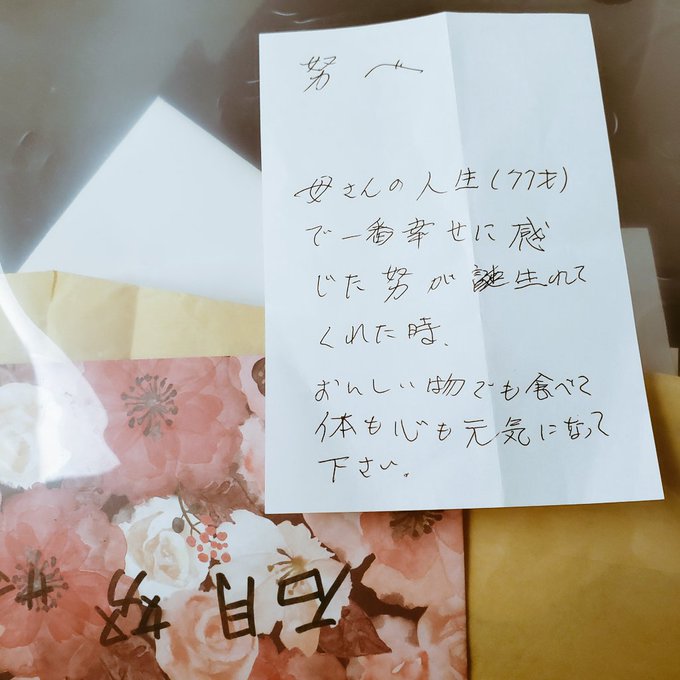 努へ
母さんの人生(77才)
で一番幸せに感
じた努が生れて
くれた時、
おいしい物でも食べて
体も心も元気になって
下さい。
石月努